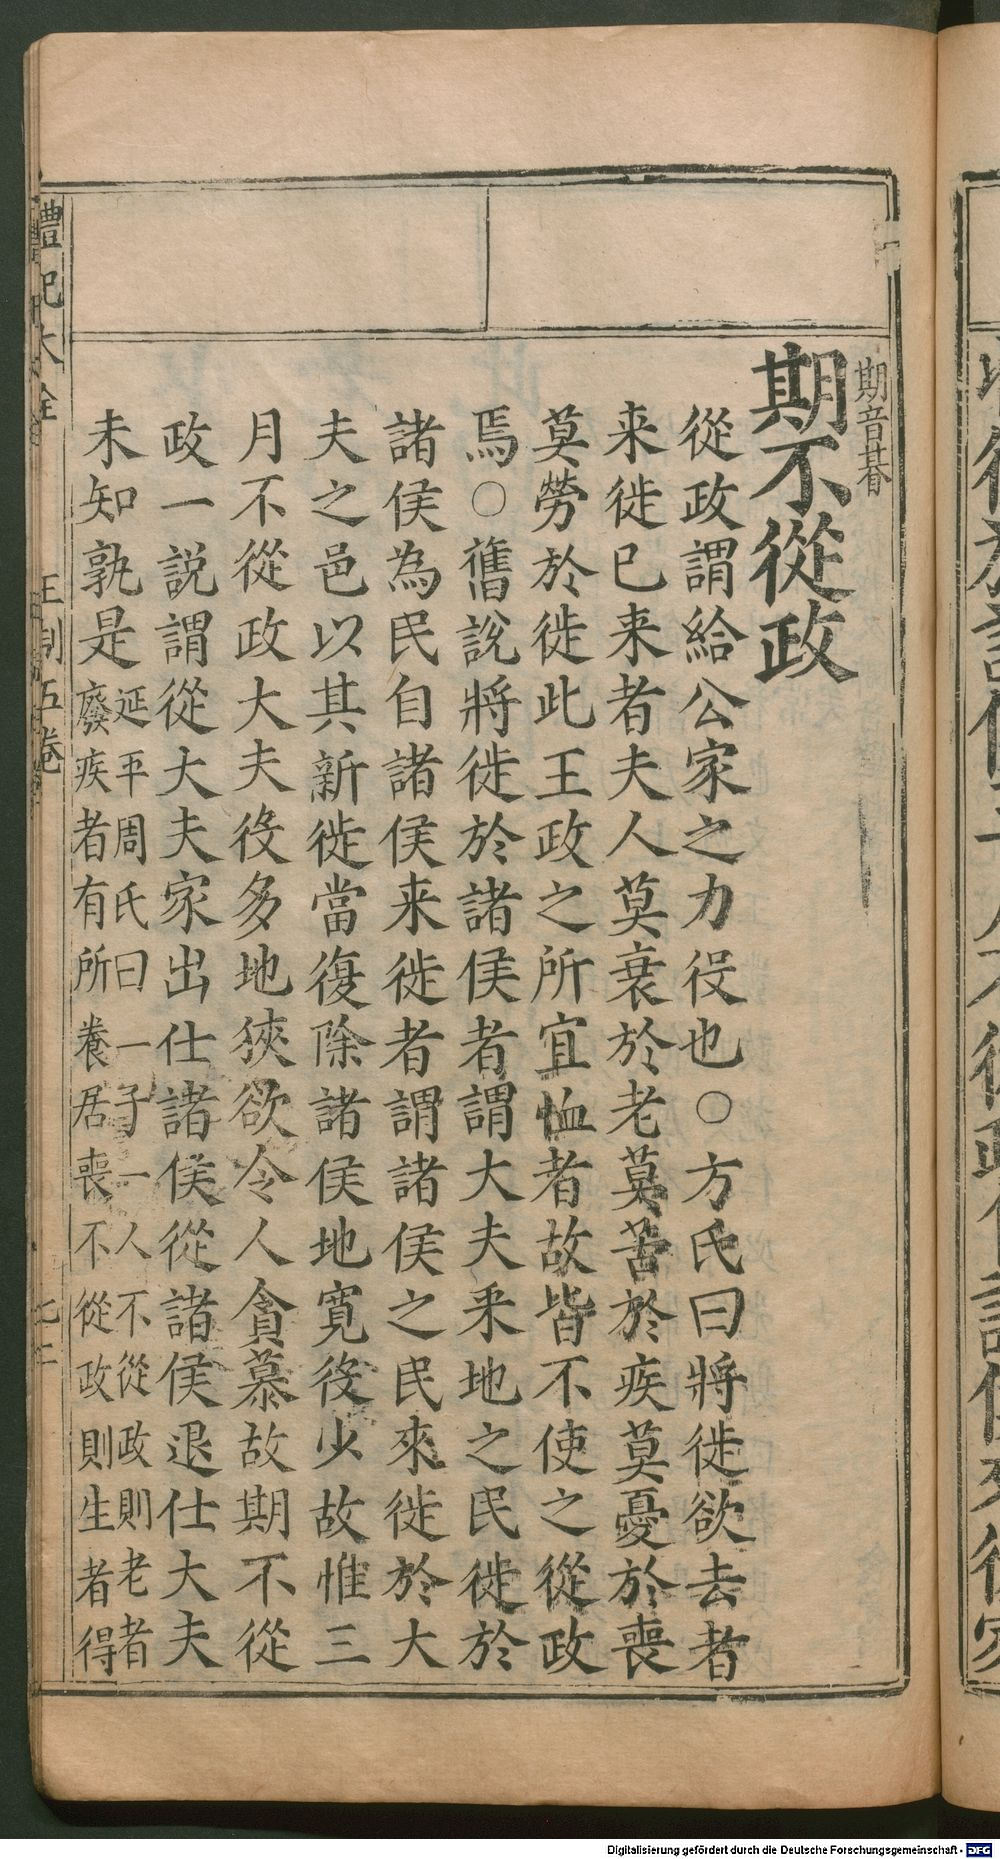 期音朞
期不從政
從政謂給公家之力役也○方氏曰將徙欲去者
来徙已来者夫人莫衰於老莫苦於疾莫憂於喪
莫勞於徙此王政之所宜恤者故皆不使之從政
焉○舊說將徙於諸侯者謂大夫采地之民徙於
諸侯為民自諸侯来徙者謂諸侯之民來徙於大
夫之邑以其新徙當復除諸侯地寛役少故惟三
月不從政大夫役多地狹欲令人貪慕故期不從
政一説謂從大夫家出仕諸侯從諸侯退仕大夫
未知孰是
延平周氏曰一子一人不從政則老者
廢疾者有所養居喪不從政則生者得
禮記大全
王制五卷
七十二
Digitalisierung gefördert durch die Deutsche Forschungsgemeinschaft - DFG